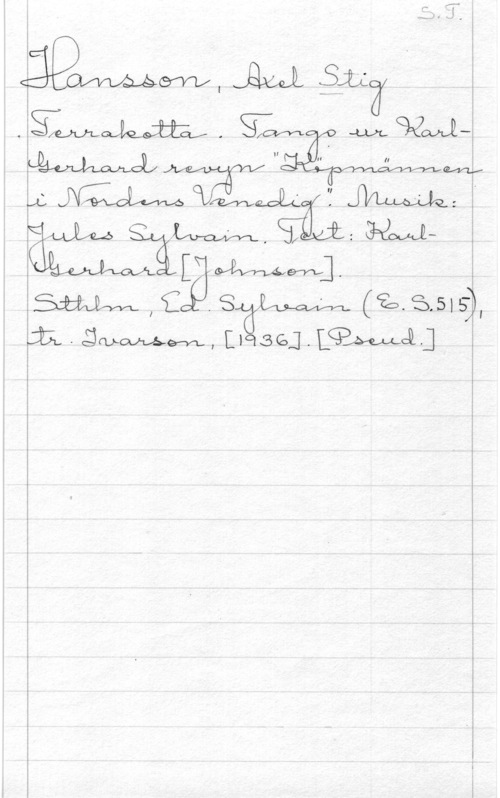 S.T.
Hansson, Axel Stig
Terrakotta. Tango ur Karl-
Gerhard revyn "Köpmännen
i Nordens Venedig". Musik:
Jules Sylvain. Text: Karl-
Gerhard [Johnson].
Sthlm, Ed. Sylvain (E.S.515),
tr. Ivarson, [1936]. [Pseud.]